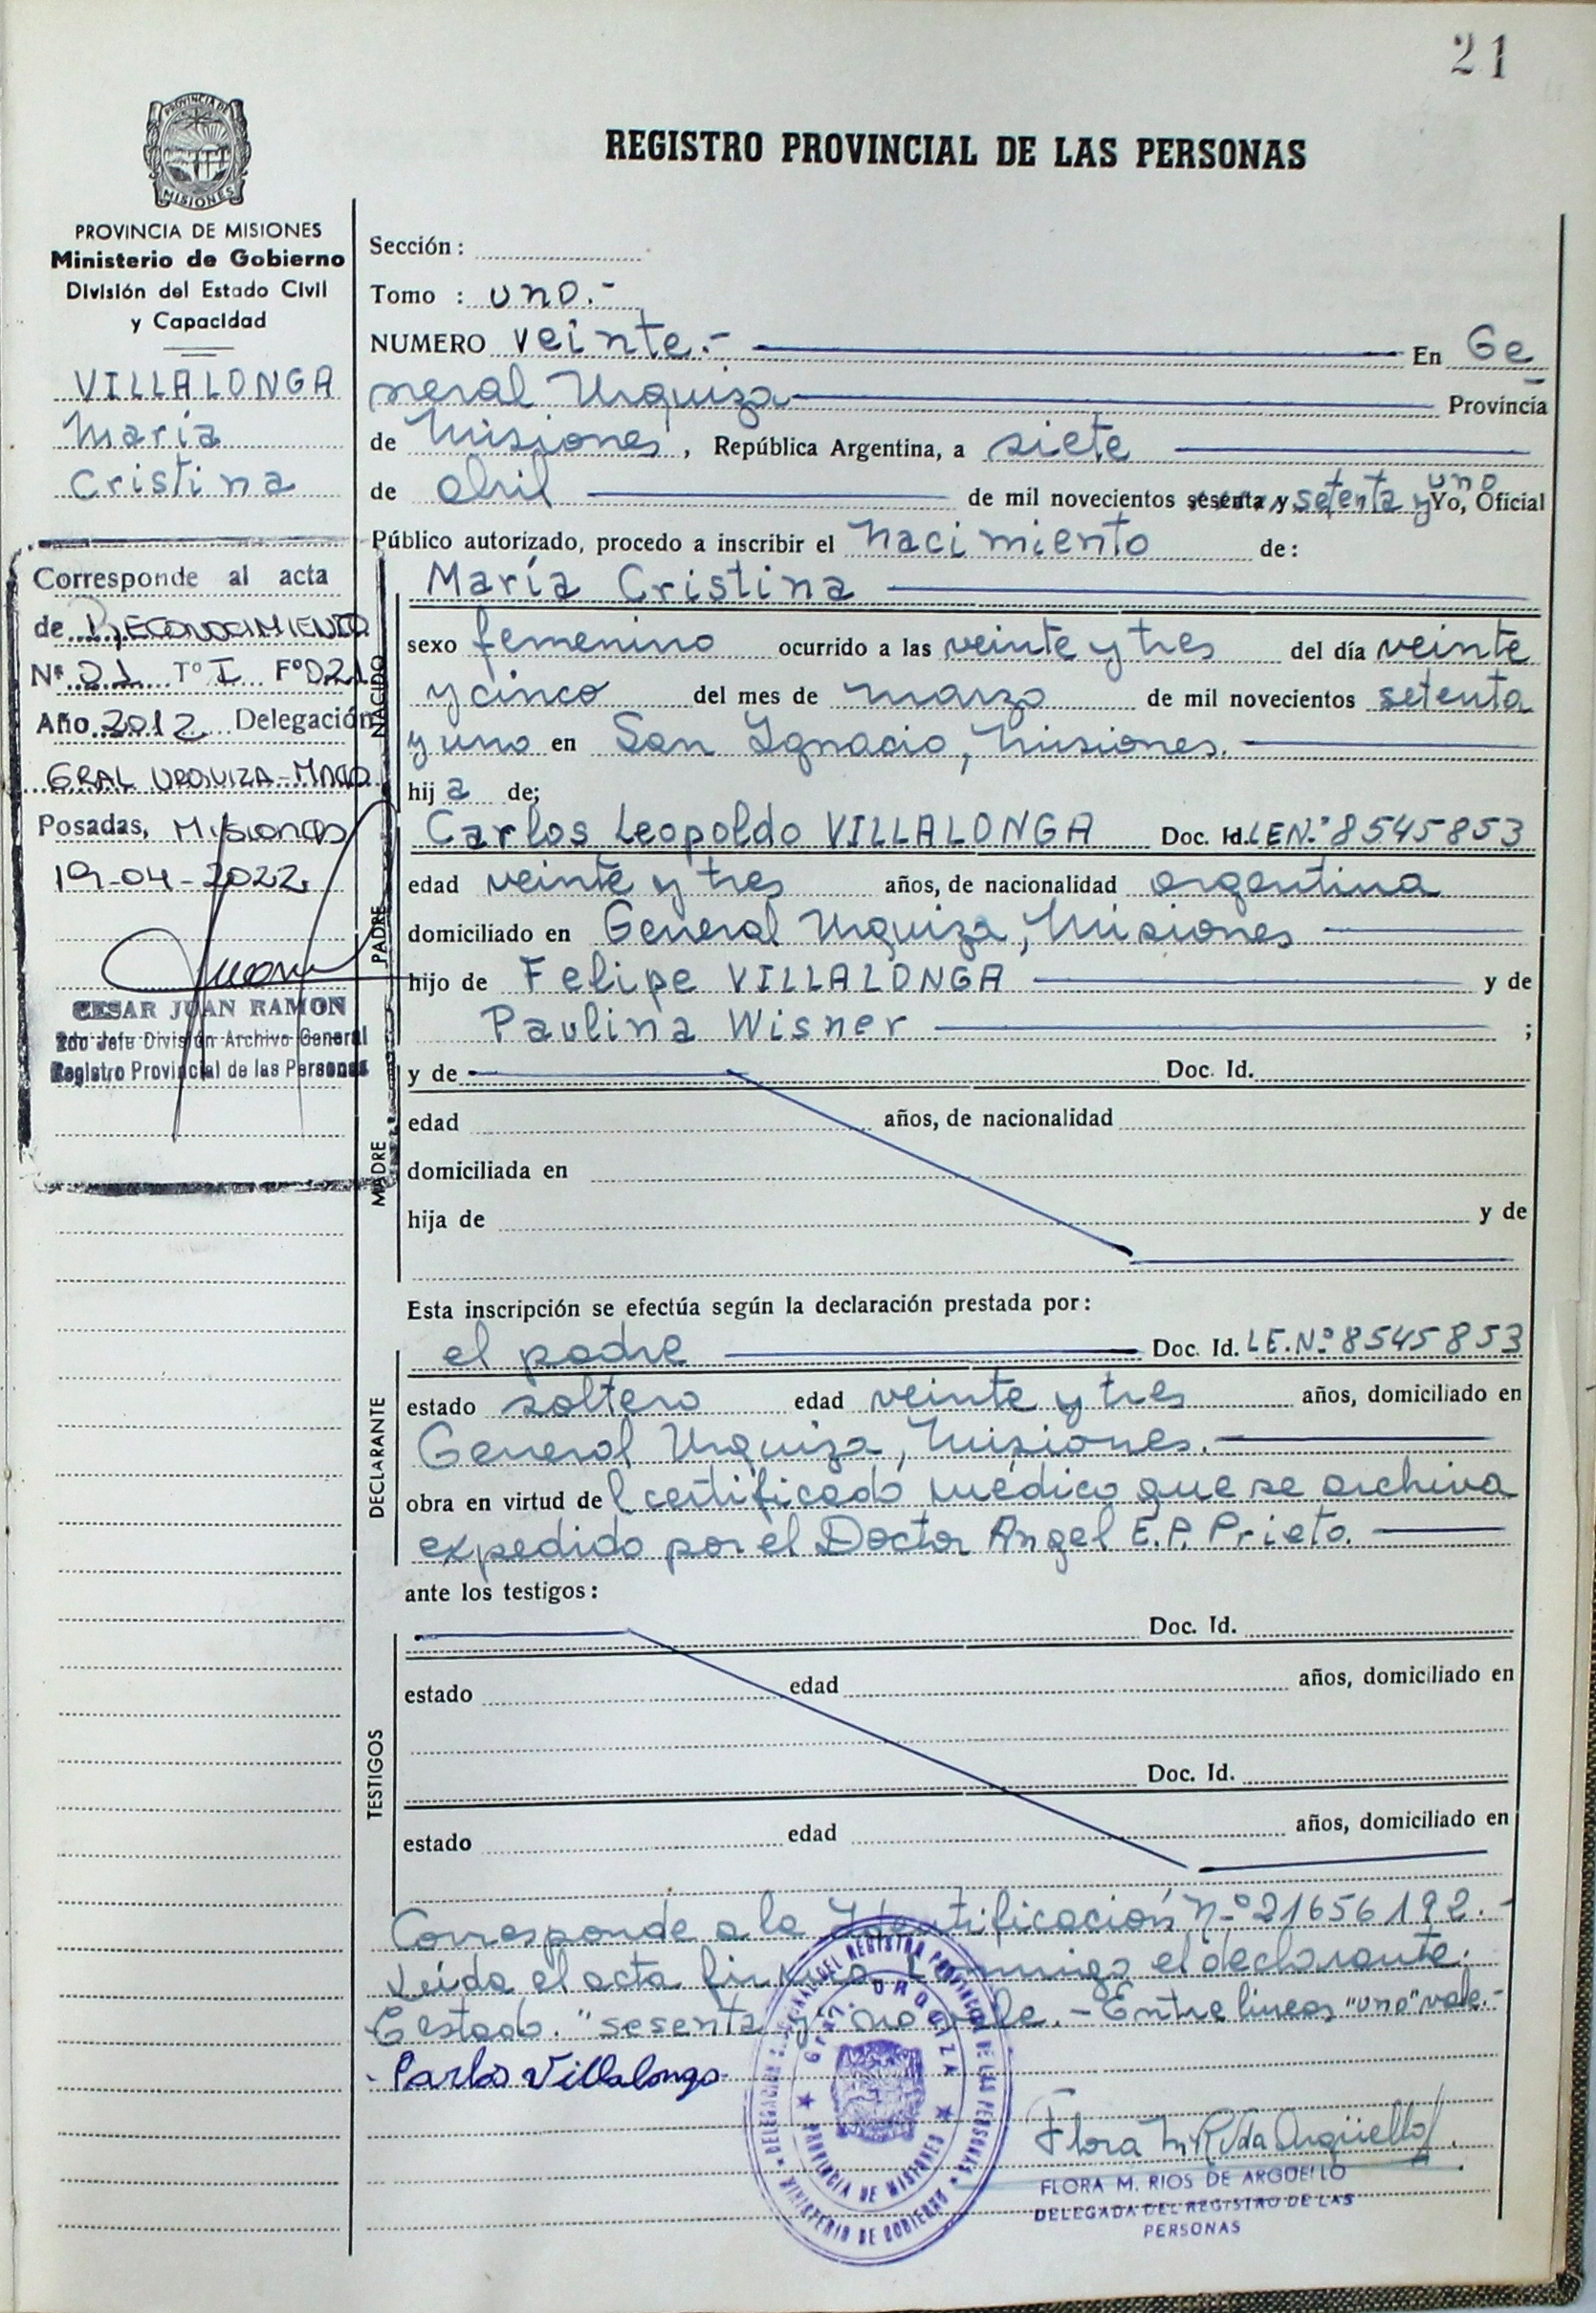 21
PROVINCIA DE
MISIONES
REGISTRO PROVINCIAL DE LAS PERSONAS
PROVINCIA DE MISIONES
Ministerio de Gobierno
División del Estado Civil
y Capacidad
VILLALONGA
María
Cristina
Corresponde al acta
de RECONOCIMIENTO
Nº 21 Tº I Fº 021
Año 2012 Delegación
GRAL URQUIZA - Mnes
Posadas, Misiones
19-04-2022
CESAR JUAN RAMON
2do Jefe División Archivo General
Registro Provincial de las Personas
Sección :
Tomo : uno.-
NUMERO veinte.- En Ge
neral Urquiza Provincia
de Misiones, República Argentina, a siete
de abril de mil novecientos sesenta y setenta y uno Yo, Oficial
Público autorizado, procedo a inscribir el nacimiento de:
María Cristina
NACIDO
sexo femenino ocurrido a las veinte y tres del día veinte
y cinco del mes de marzo de mil novecientos setenta
y uno en San Ignacio, Misiones.
hij a de;
PADRE
Carlos Leopoldo VILLALONGA Doc. Id. LE Nº 8545853
edad veinte y tres años, de nacionalidad argentina
domiciliado en General Urquiza, Misiones
hijo de Felipe VILLALONGA y de
Paulina Wisner ;
MADRE
y de Doc. Id.
edad años, de nacionalidad
domiciliada en
hija de y de
Esta inscripción se efectúa según la declaración prestada por:
DECLARANTE
el padre Doc. Id. LE. Nº 8545853
estado soltero edad veinte y tres años, domiciliado en
General Urquiza, Misiones.
obra en virtud del certificado médico que se archiva
expedido por el Doctor Angel E.P. Prieto.
ante los testigos:
TESTIGOS
Doc. Id.
estado edad años, domiciliado en
Doc. Id.
estado edad años, domiciliado en
Corresponde a la Identificación Nº 21656192.-
Leída el acta firma conmigo el declarante.
Testado. "sesenta y" no vale.- Entre líneas "uno" vale.-
Carlos Villalonga
Gral. URQUIZA
PROVINCIA DE MISIONES
MINISTERIO DE GOBIERNO
DEL REGISTRO PROVINCIAL DE LAS PERSONAS
Flora M R de Argüello
FLORA M. RIOS DE ARGÜELLO
DELEGADA DEL REGISTRO DE LAS
PERSONAS